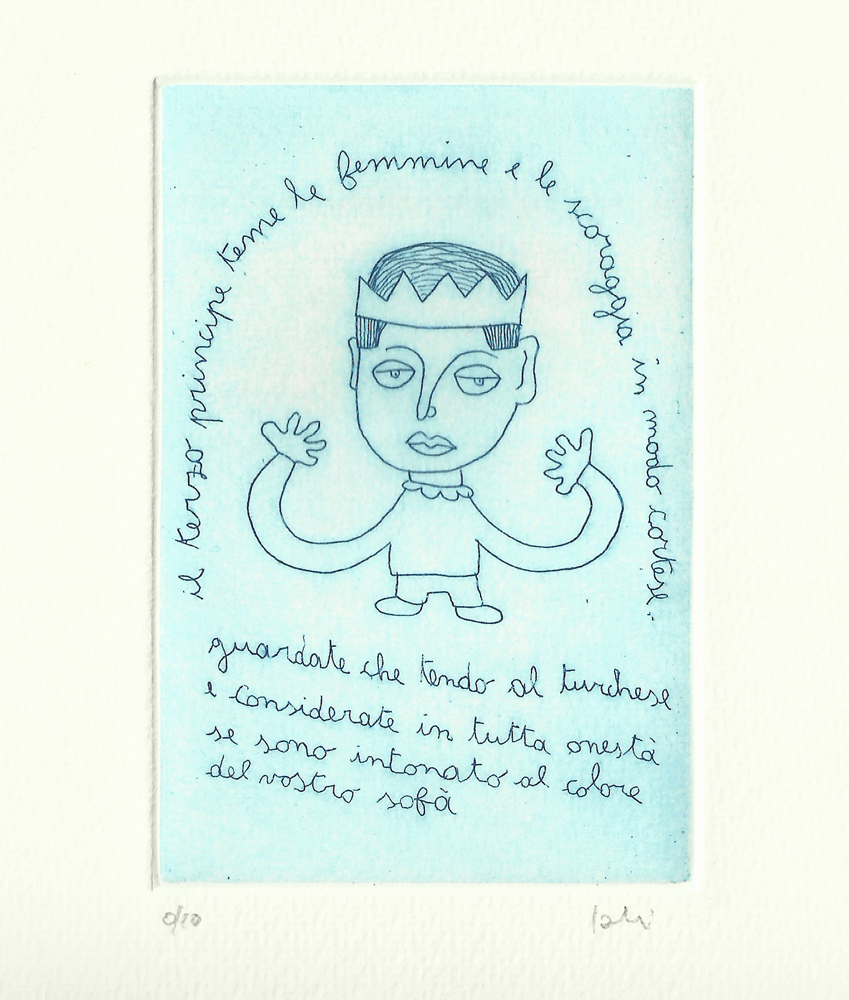 il terzo principe teme le femmine e le scoraggia in modo cortese.
guardate che tendo al turchese
e considerate in tutta onestà
se sono intonato al colore
del vostro sofà
0/10